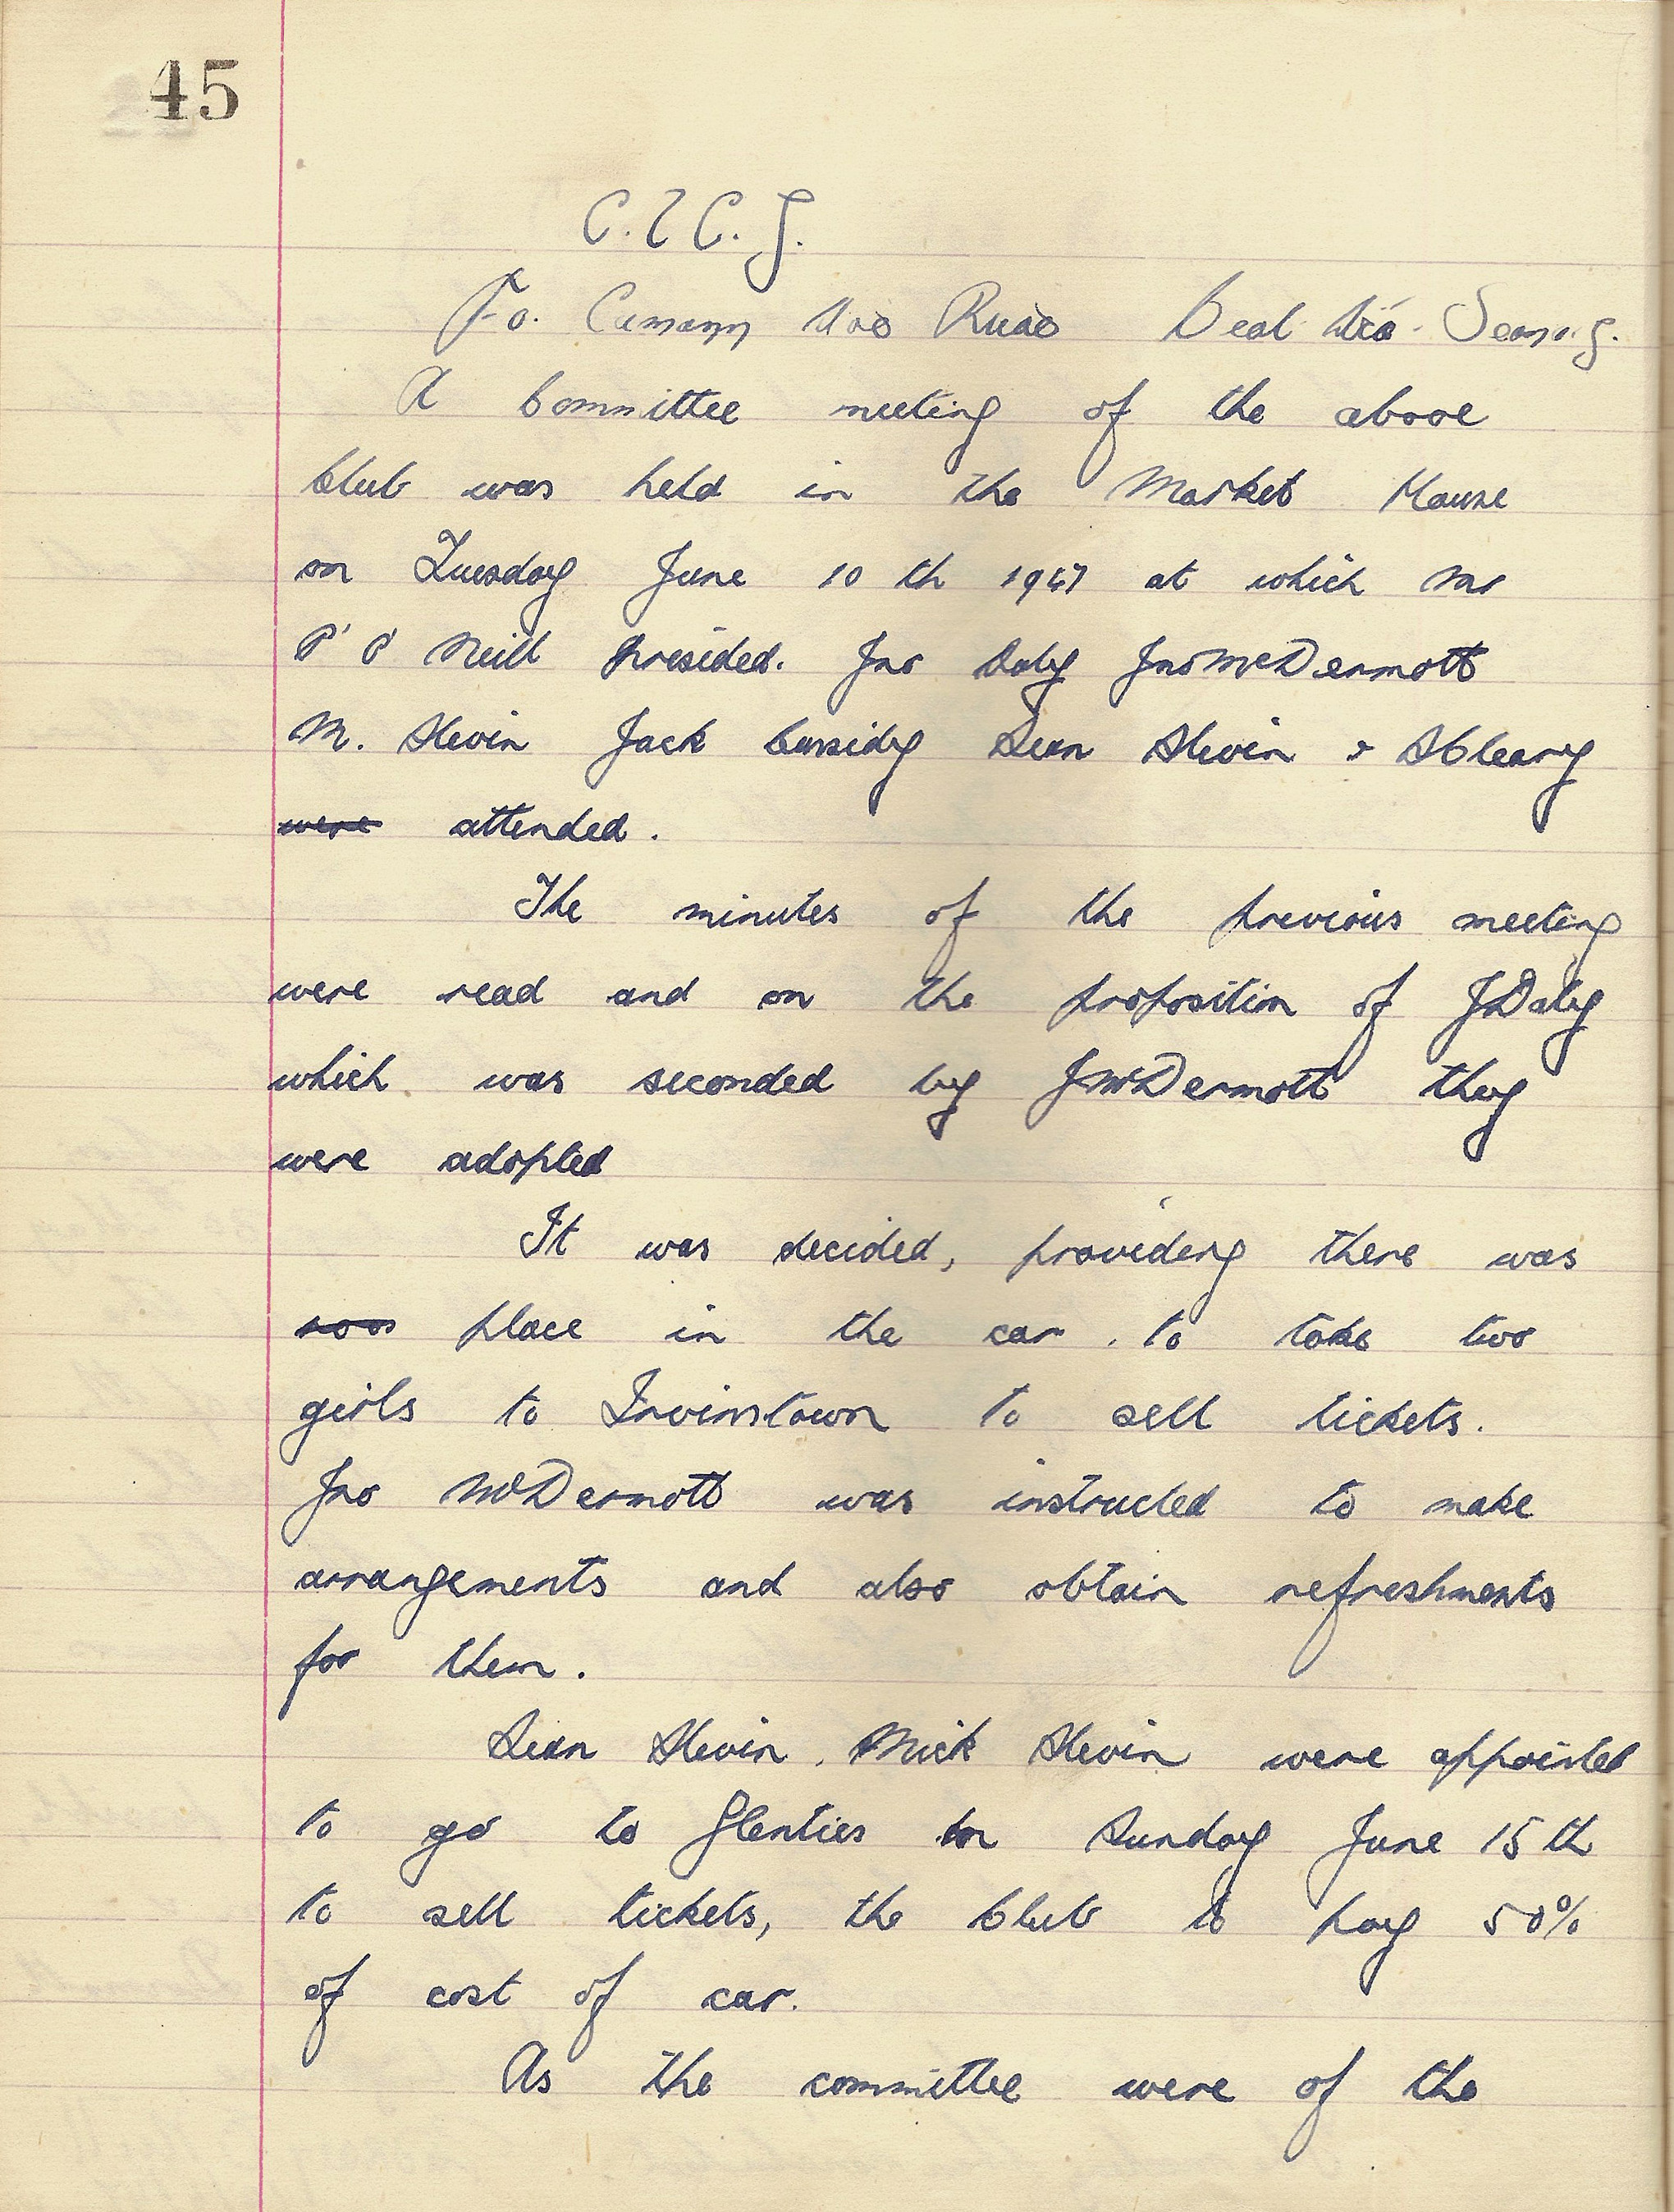 45
C. L C. G.
Fo. Cumann Aod Ruad Beal Áta Seanaig.
A Committee meeting of the above
Club was held in the Market House
on Tuesday June 10 th 1947 at which Mr
P O Neill Presided. Jno Daly Jno McDermott
M. Slevin Jack Cassidy Sean Slevin & S Cleary
were attended.
The minutes of the previous meeting
were read and on the proposition of J Daly
which was seconded by J McDermott they
were adopted
It was decided, providing there was
room place in the car. to take two
girls to Irvinstown to sell tickets.
Jno McDermott was instructed to make
arrangements and also obtain refreshments
for them.
Sean Slevin. Mick Slevin were appointed
to go to Glenties on Sunday June 15 th
to sell tickets, the Club to pay 50%
of cost of car.
As the committee were of the